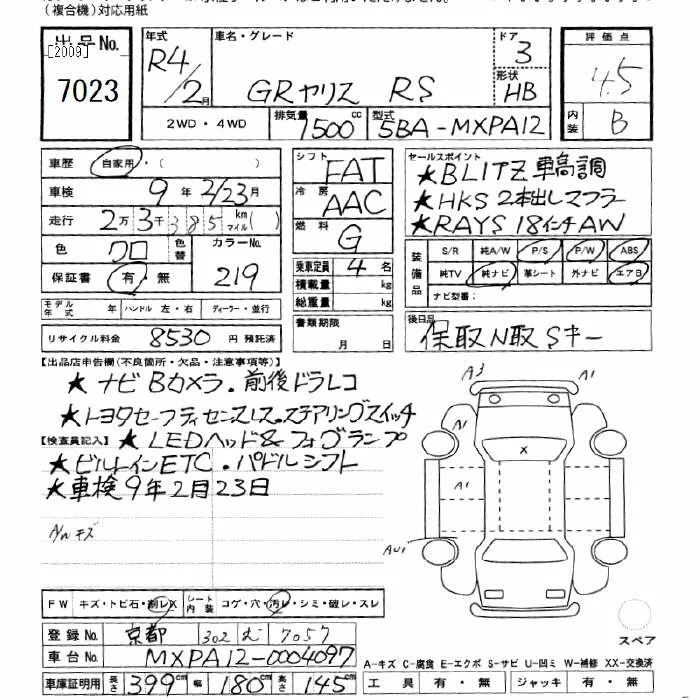 (複合機)対応用紙
出品No. [2009] 7023
年式 R4/2月
車名・グレード GRヤリス RS
ドア 3
形状 HB
評価点 4.5
内装 B
2WD・4WD
排気量 1500cc
型式 5BA-MXPA12
車歴 自家用・( )
車検 9年2/23月
走行 2万3千385km マイル( )
色 クロ 色替 カラーNo. 219
保証書 有・無
モデル年式 年 ハンドル 左・右 ディーラー・並行
リサイクル料金 8530 円 預託済
シフト FAT
冷房 AAC
燃料 G
乗車定員 4 名
積載量 kg
総重量 kg
書類期限 月 日
セールスポイント
★BLITZ 車高調
★HKS 2本出しマフラー
★RAYS 18インチAW
装備品 S/R 純A/W P/S P/W ABS
純TV 純ナビ 革シート 外ナビ エアB
ナビ型番:
後日品
保取N取Sキー
【出品店申告欄(不良箇所・欠品・注意事項等)】
★ナビBカメラ・前後ドラレコ
★トヨタセーフティセンスレス・ステアリングスイッチ
【検査員記入】★LEDヘッド&フォグランプ
★ビルトインETC・パドルシフト
★車検9年2月23日
A/W キズ
A3 A1
A1
X
A1
AU1
FW キズ・トビ石・削レX シート内装 コゲ・穴・汚レ・シミ・破レ・スレ
登録No. 京都 302 む 7057
車台No. MXPA12-0004097
車庫証明用 長さ 399cm 幅 180cm 高さ 145cm
スペア
A-キズ C-腐食 E-エクボ S-サビ U-凹ミ W-補修 XX-交換済
工具 有・無 ジャッキ 有・無